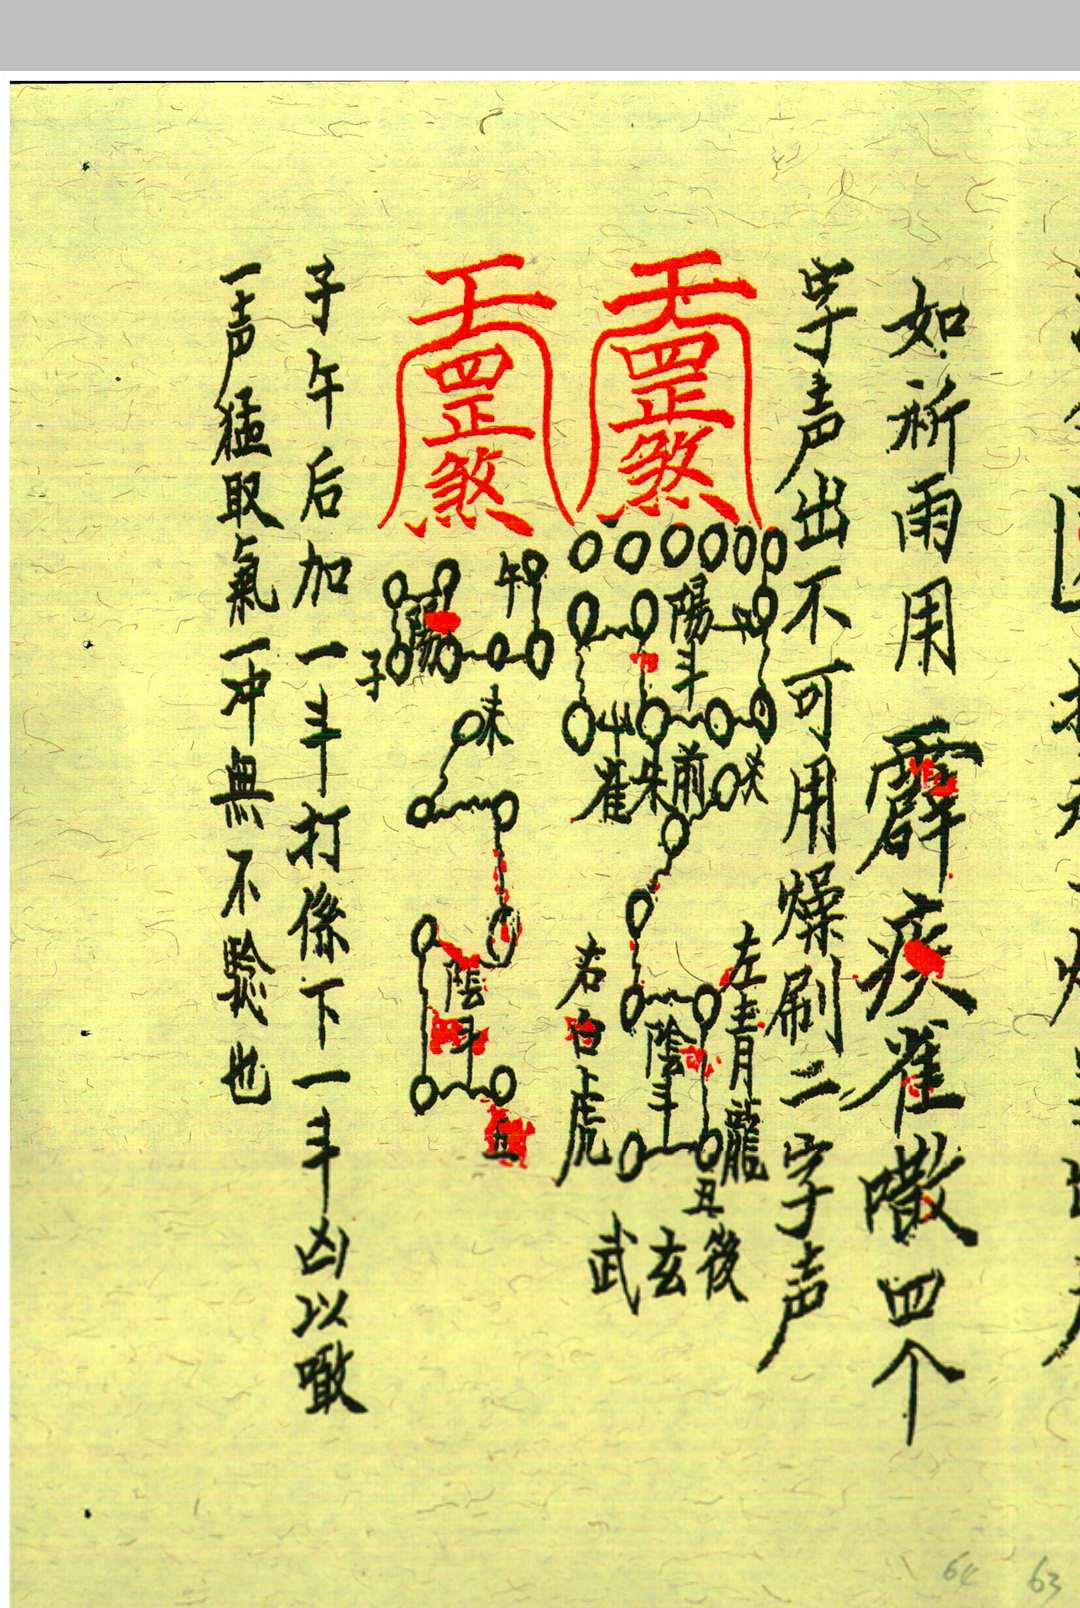 如祈雨用霹疾雀噉四个
字声出不可用燥刷二字声
罡煞
陽斗
前朱雀
左青龍
右白虎
陰斗
丑
後玄武
罡煞
午
陽
子
未
陰斗
丑
子午后加一斗打係下一斗凶以噉
一声猛取氣一冲無不驗也
64
63